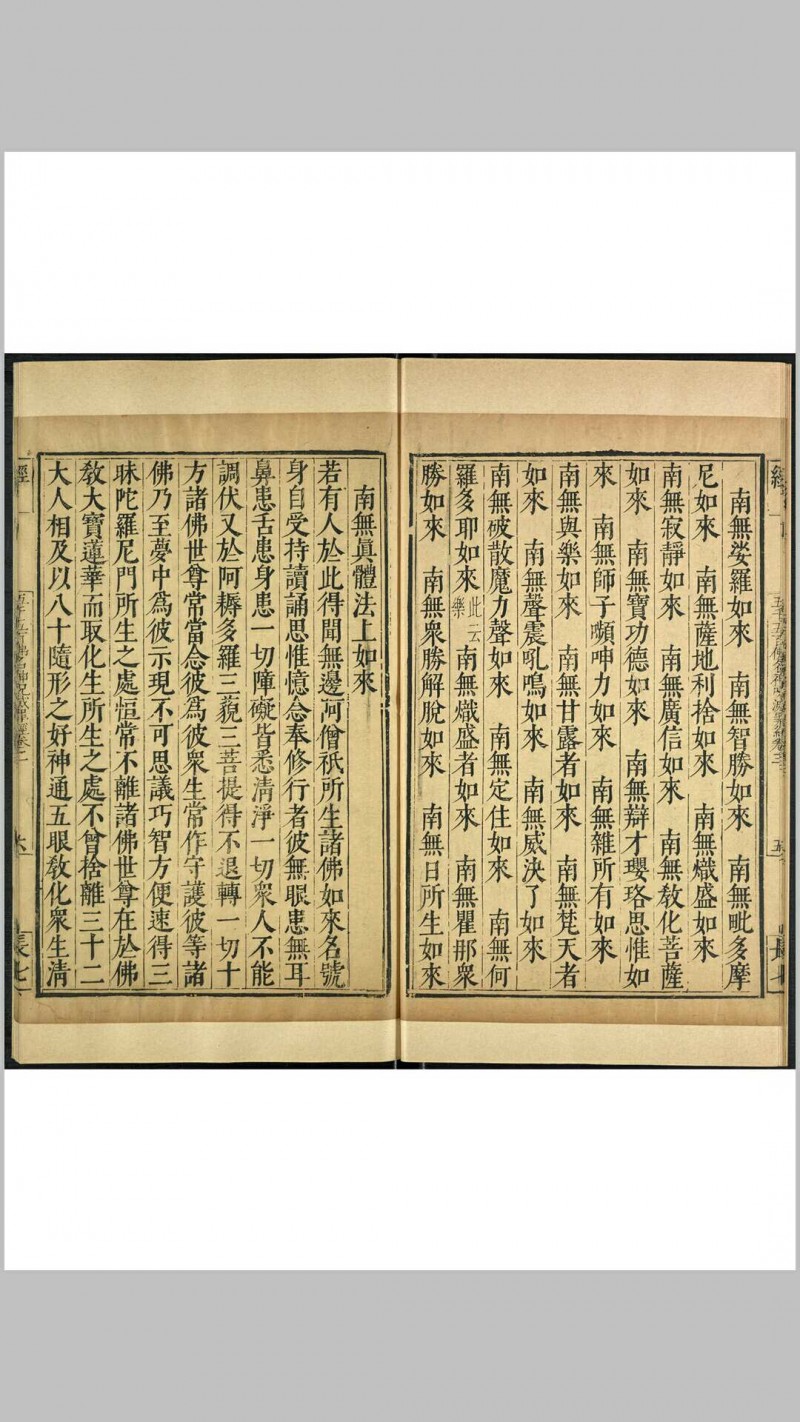 南無娑羅如來　南無智勝如來　南無毗多摩
尼如來　南無薩地利捨如來　南無熾盛如來
南無寂靜如來　南無廣信如來　南無教化菩薩
如來　南無寶功德如來　南無辯才瓔珞思惟如
來　南無師子嚬呻力如來　南無雜所有如來
南無與樂如來　南無甘露者如來　南無梵天者
如來　南無聲震吼鳴如來　南無威決了如來
南無破散魔力聲如來　南無定住如來　南無何
羅多耶如來此云樂　南無熾盛者如來　南無瞿那衆
勝如來　南無衆勝解脫如來　南無日所生如來
南無眞體法上如來
若有人於此得聞無邊阿僧祇所生諸佛如來名號
身自受持讀誦思惟憶念奉修行者彼無眼患無耳
鼻患舌患身患一切障礙皆悉清淨一切衆人不能
調伏又於阿耨多羅三藐三菩提得不退轉一切十
方諸佛世尊常當念彼爲彼衆生常作守護彼等諸
佛乃至夢中爲彼示現不可思議巧智方便速得三
昧陀羅尼門所生之處恒常不離諸佛世尊在於佛
教大寶蓮華而取化生所生之處不曾捨離三十二
大人相及以八十隨形之好神通五眼教化衆生清